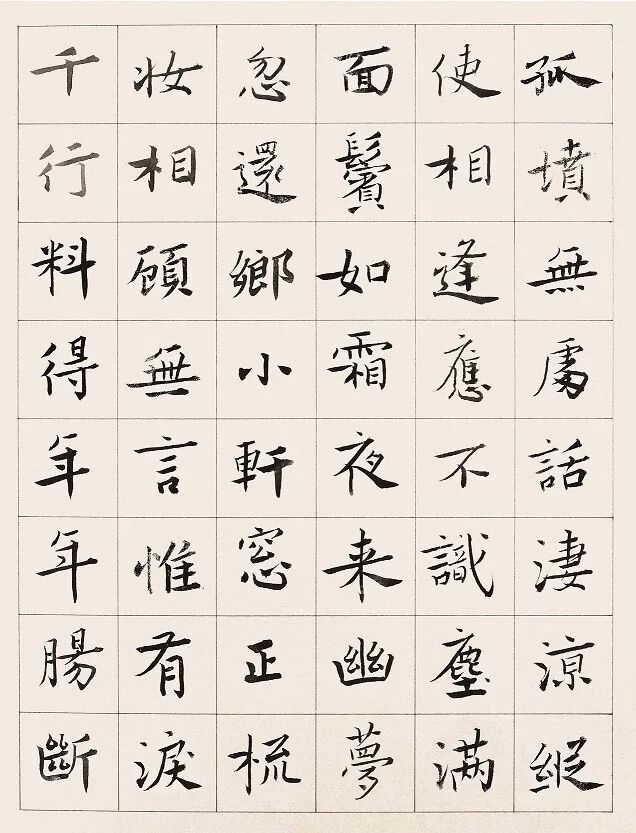 孤墳無處話淒涼縱
使相逢應不識塵滿
面鬢如霜夜来幽夢
忽還鄉小軒窓正梳
妝相顧無言惟有淚
千行料得年年腸斷